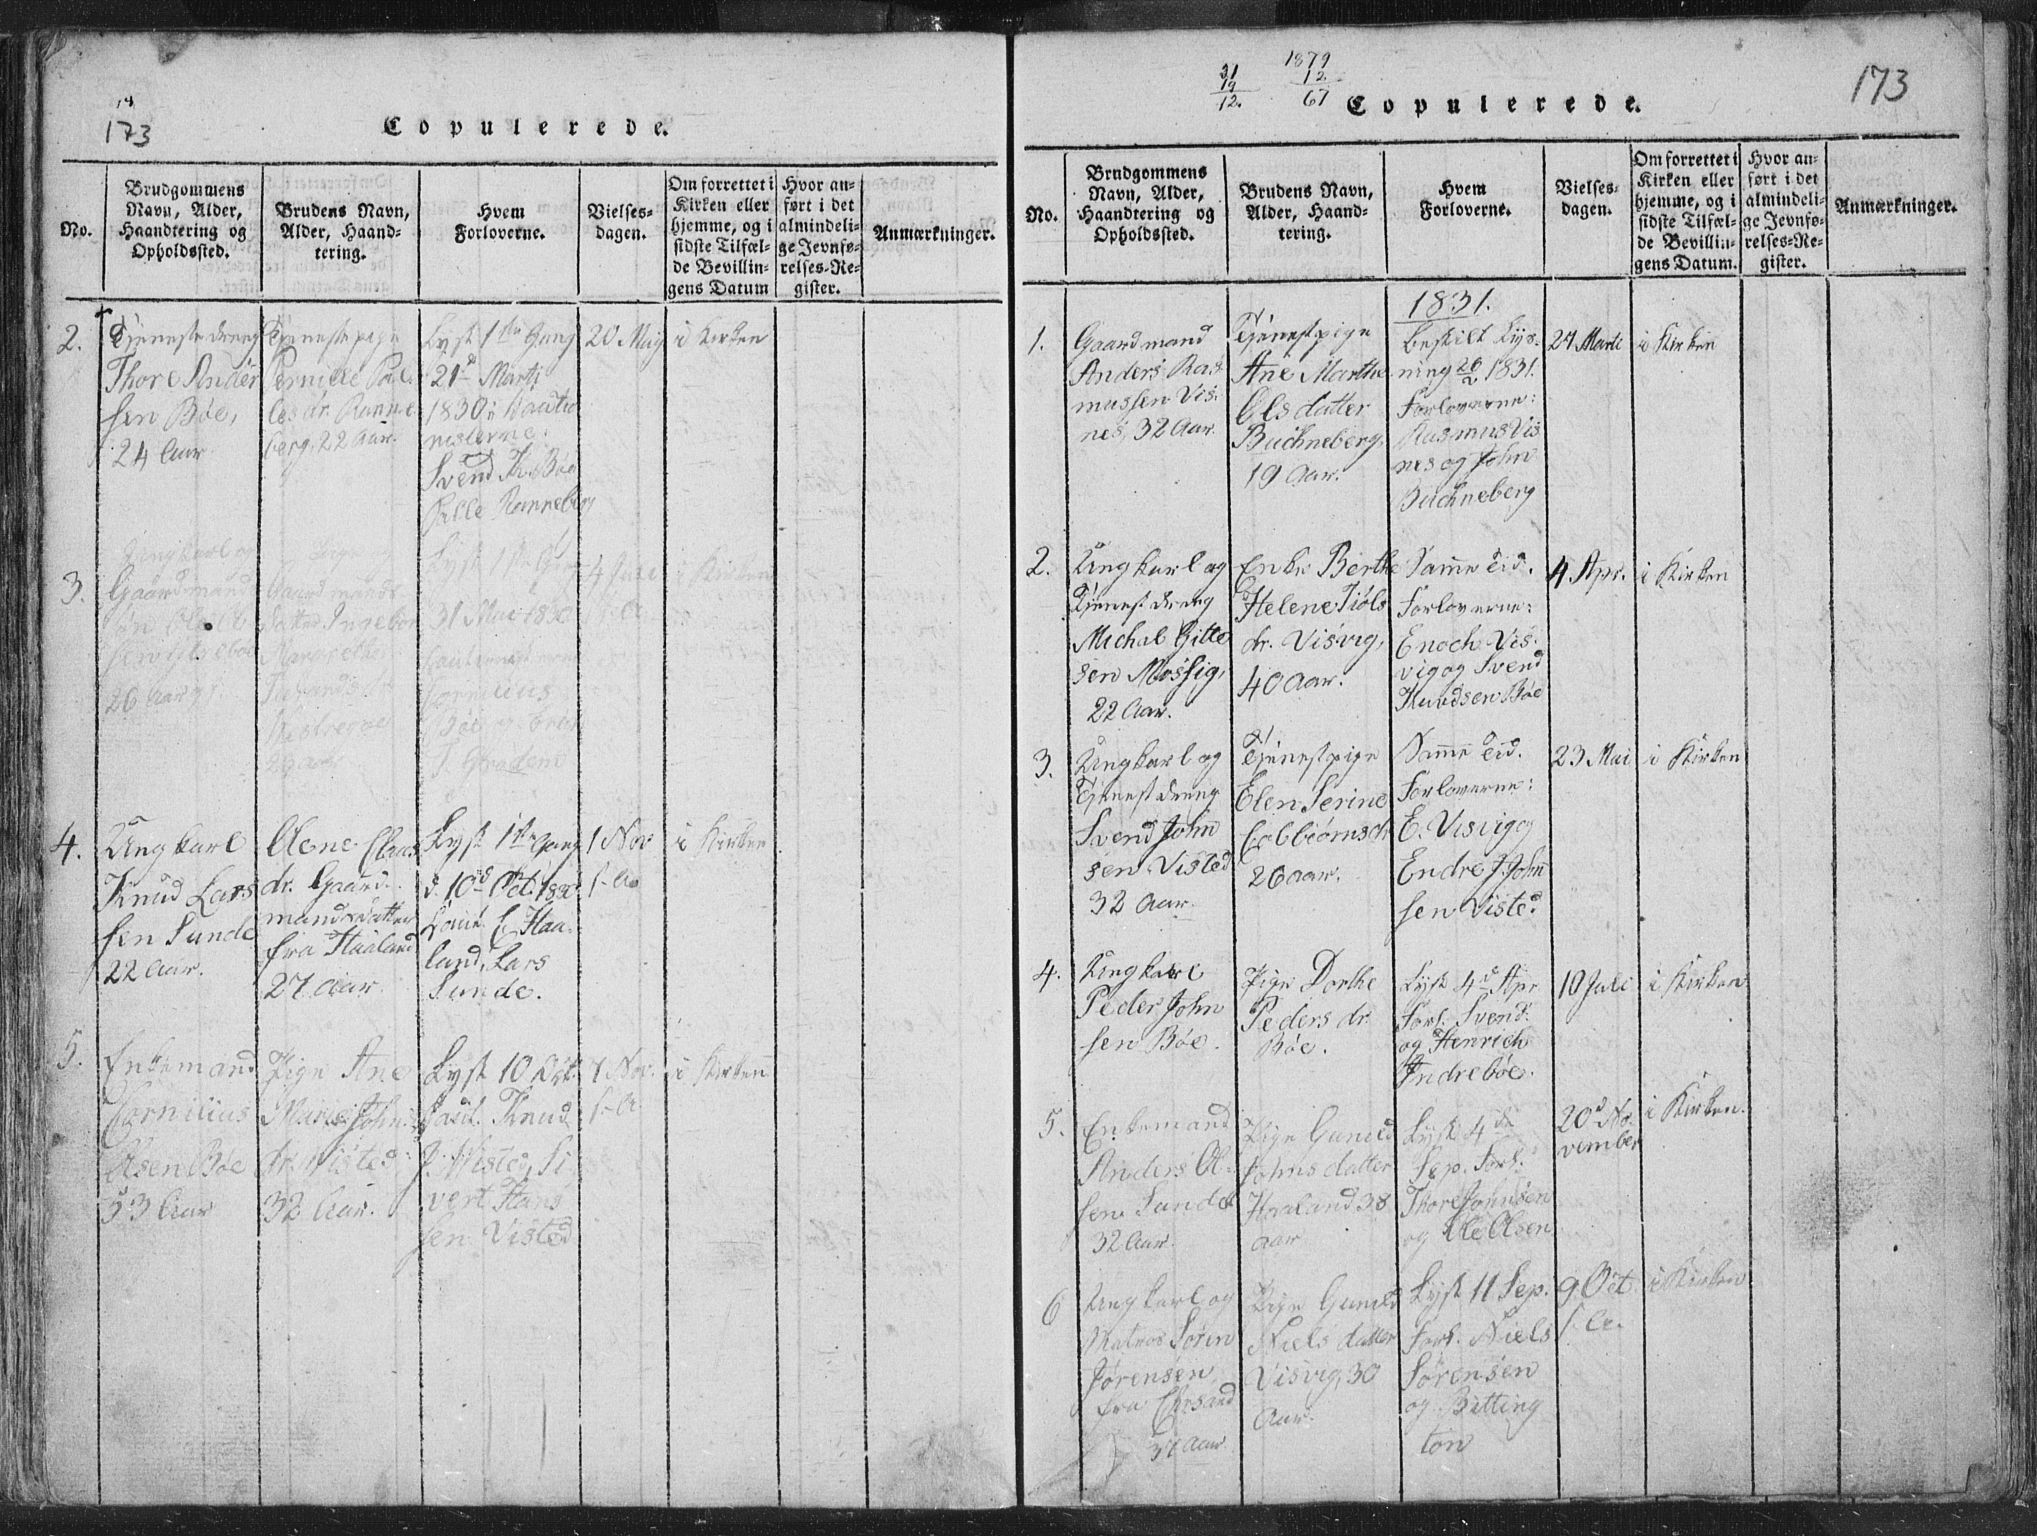 173
Copulerede.
No.
Brudgommens
Navn, Alder,
Haandtering og
Opholdssted.
Brudens Navn,
Alder, Haand-
tering.
Hvem
Forloverne.
Vielses-
dagen.
Om forrettet i
Kirken eller
hjemme, og i
sidste Tilfæl-
de Bevillin-
gens Datum
Hvor an-
ført i det
almindeli-
ge Jevnfø-
relses-Re-
gister.
Anmærkninger.
2.
Tjenestedreng
Thore Ander
sen Böe,
24 Aar
Tjenestepige
Pernille Pal-
lesdr. Ranne
berg, 22 Aar.
Lyst 1ste Gang
21d Martj
1830
Svend K. Böe
Palle Ranneberg
20 Maj
i Kirken
3.
Ungkarl og
Gaardmands
26 Aar
Gaardmands
datter Ingebor
Margrethe
Lyst 1ste Gang
31 Mai 1830
Cornelius
Böe
4 Juli
i Kirken
4.
Ungkarl
Knud Lars
sen Sunde
22 Aar.
Olene Claus
dr. Gaard-
mandsdatter
fra Haaland
27 Aar
Lyst 1ste Gang
d. 10d Oct. 1830
Haa-
land, Lars
Sunde.
1 Nov
i Kirken
5.
Enkemand
Cornilius
Olsen Böe
53 Aar
Pige Ane
Marie John
dr. Visted
32 Aar.
Lyst 10 Oct.
Caut. Knud
J. Visted, Si
vert Hans
sen Visted
1 Nov.
i Kirken
31
19
12.
1879
12
67
Copulerede.
173
No.
Brudgommens
Navn, Alder,
Haandtering og
Opholdssted.
Brudens Navn,
Alder, Haand-
tering.
Hvem
Forloverne.
Vielses-
dagen.
Om forrettet i
Kirken eller
hjemme, og i
sidste Tilfæl-
de Bevillin-
gens Datum.
Hvor an-
ført i det
almindeli-
ge Jevnfø-
relses-Re-
gister.
Anmærkninger.
1831.
1.
Gaardmand
Anders Ras
mussen Vis-
nes, 32 Aar.
Tjenestpige
Ane Marthe
Olsdatter
Buchneberg,
19 Aar.
Bestilt Lys-
ning 26/2 1831.
Forloverne:
Rasmus Vis
nes og John
Buchneberg
27 Marti
i Kirken
2.
Ungkarl og
Tjenestdreng
Michal Gitle
sen Mossig,
22 Aar.
Enke Berthe
Helene Tiöls
dr. Visvig,
40 Aar.
Samme Tid.
Forloverne:
Enoch Vis-
vig og Svend
Knudsen Böe
4 Apr.
i Kirken
3.
Ungkarl og
Tjenestdreng
Svend John
sen Visted
32 Aar.
Tjenestpige
Elen Serine
Colbiörnsdr
26 Aar.
Samme Tid.
Forloverne:
E. Visvig og
Endre J. John
sen Visted
23 Mai
i Kirken
4.
Ungkarl
Peder John
sen Böe.
Pige Dorthe
Pedersdr.
Böe.
Lyst 4d Apr
Forl. Svend
og Henrich
Indreböe.
10 Juli
i Kirken
5.
Enkemand
Anders Ol-
sen Sunde
32 Aar.
Pige Gunild
Johnsdatter
Haaland 38
Aar
Lyst 4de
Sep. Forl.
Thore Johnsen
og Ole Olsen
20d No-
vember
i Kirken.
6
Ungkarl og
Matros Sören
Jörensen
fra Chrsand
37 Aar
Pige Gunild
Nielsdatter
Visvig, 30
Aar.
Lyst 11 Sep.
Forl. Niels
Sörensen
og Bitting
ton
9 Oct.
i Kirken